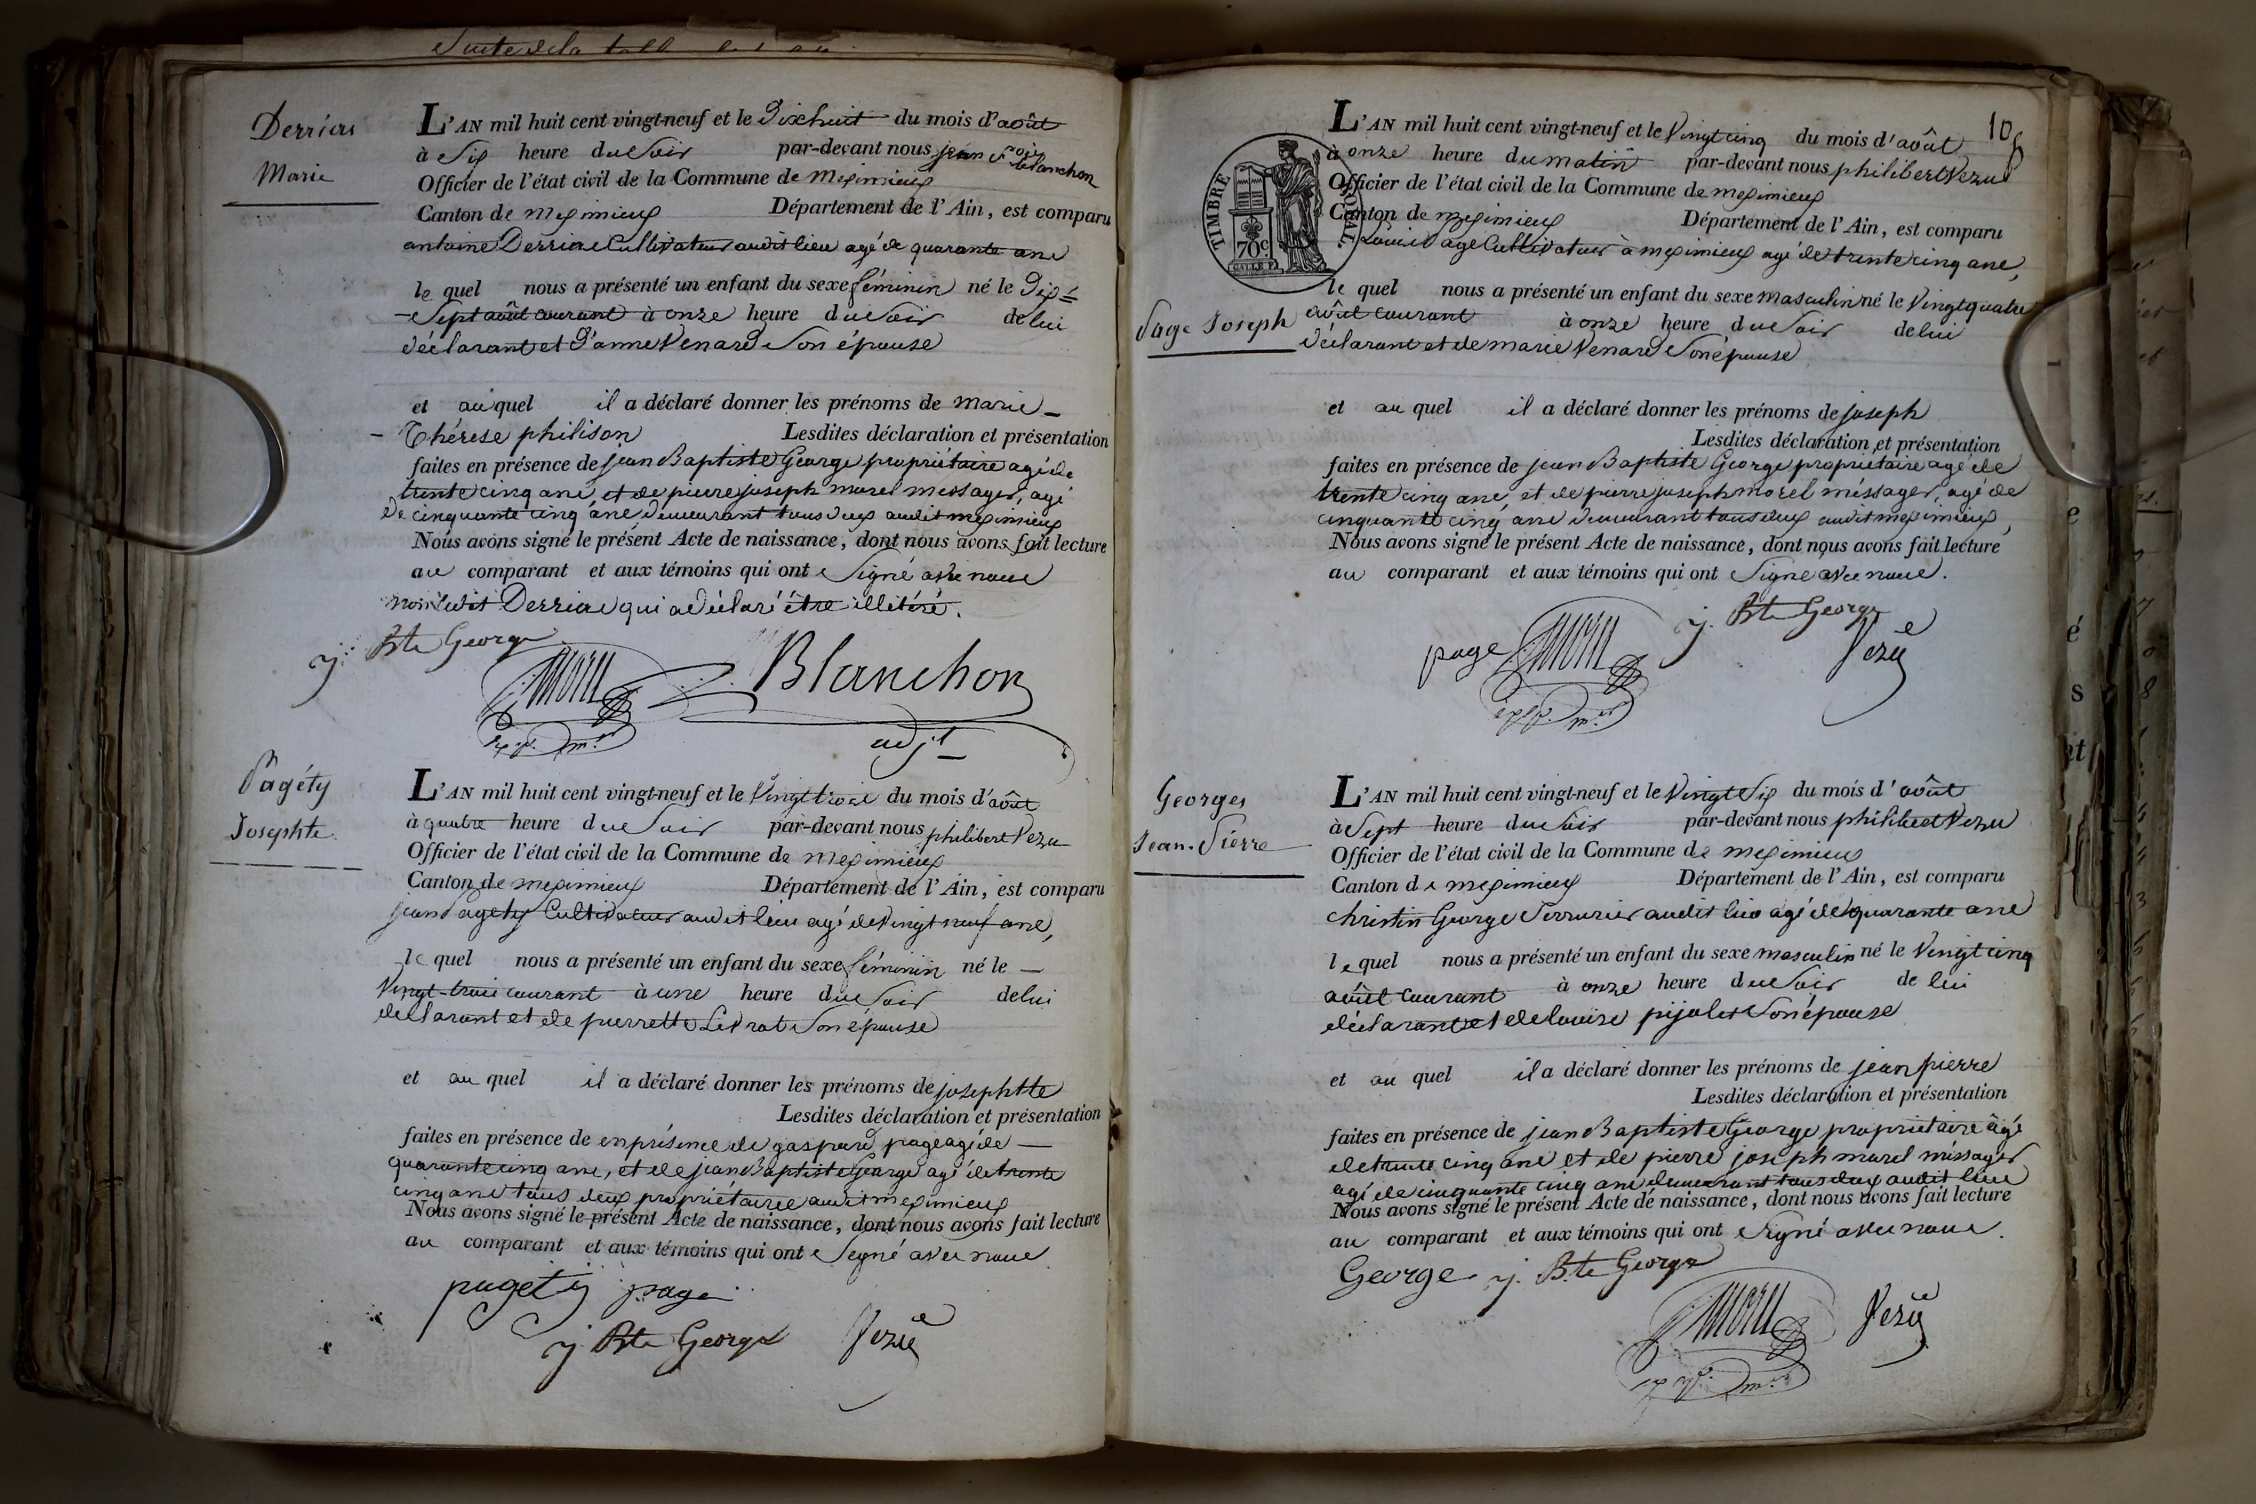 Derrias
Marie
L'AN mil huit cent vingt-neuf et le Dixhuit du mois d'août
à Six heure du Soir par-devant nous jean Fçois Blanchon
Officier de l'état civil de la Commune de meximieux
Canton de meximieux Département de l'Ain, est comparu
antoine Derrias Cultivateur audit lieu agé de quarante ans
le quel nous a présenté un enfant du sexe féminin né le Dix=
Sept août courant à onze heure du Soir de lui
déclarant et D'anne Venard Son épouse
et au quel il a déclaré donner les prénoms de marie
Thérese philison Lesdites déclaration et présentation
faites en présence de jean Baptiste George propriétaire agé de
trente cinq ans, et de pierre joseph morel messager, agé
De cinquante cinq ans Demeurant tous deux audit meximieux
Nous avons signé le présent Acte de naissance, dont nous avons fait lecture
au comparant et aux témoins qui ont Signé avec nous
non ledit Derrias qui a déclaré être illitéré.
j. Bte George
Blanchon
adjt
Pagéty
Josephte
L'AN mil huit cent vingt-neuf et le Vingt trois du mois d'août
à quatre heure du Soir par-devant nous philibert Vezu
Officier de l'état civil de la Commune de meximieux
Canton de meximieux Département de l'Ain, est comparu
jean Pagety Cultivateur audit lieu agé de Vingt neuf ans,
le quel nous a présenté un enfant du sexe féminin né le
Vingt-trois courant à une heure du Soir de lui
déclarant et de pierrette Livrat Son épouse
et au quel il a déclaré donner les prénoms de josephtte
Lesdites déclaration et présentation
faites en présence de en présence de gaspard page agé de
quarante cinq ans, et de jean Baptiste George agé de trente
cinq ans tous deux propriétaires audit meximieux
Nous avons signé le présent Acte de naissance, dont nous avons fait lecture
au comparant et aux témoins qui ont Signé avec nous
pagety page
j Bte George Vezu
TIMBRE ROYAL
70c.
Page Joseph
L'AN mil huit cent vingt-neuf et le Vingt cinq du mois d'août
à onze heure du matin par-devant nous philibert Vezu
Officier de l'état civil de la Commune de meximieux
Canton de meximieux Département de l'Ain, est comparu
Louis Page Cultivateur à meximieux agé de trente cinq ans,
le quel nous a présenté un enfant du sexe masculin né le Vingt quatre
août courant à onze heure du Soir de lui
Déclarant et de marie Venard Son épouse
et au quel il a déclaré donner les prénoms de joseph
Lesdites déclaration et présentation
faites en présence de jean Baptiste George propriétaire agé de
trente cinq ans, et de pierre joseph morel méssager, agé de
cinquante cinq ans demeurant tous deux audit meximieux,
Nous avons signé le présent Acte de naissance, dont nous avons fait lecture
au comparant et aux témoins qui ont Signé avec nous.
page j. Bte George
Vezu
Georges
Jean-Pierre
L'AN mil huit cent vingt-neuf et le Vingt Six du mois d'août
à Sept heure du Soir par-devant nous philibert Vezu
Officier de l'état civil de la Commune de meximieux
Canton de meximieux Département de l'Ain, est comparu
christin George Serrurier audit lieu agé de quarante ans
lequel nous a présenté un enfant du sexe masculin né le Vingt cinq
août courant à onze heure du Soir de lui
déclarant et de louise pijolet Son épouse
et au quel il a déclaré donner les prénoms de jean pierre
Lesdites déclaration et présentation
faites en présence de jean Baptiste George propriétaire âgé
de trente cinq ans et de pierre joseph morel méssager
agé de cinquante cinq ans demeurant tous deux audit lieu
Nous avons signé le présent Acte de naissance, dont nous avons fait lecture
au comparant et aux témoins qui ont Signé avec nous.
George j. Bte George
Vezu